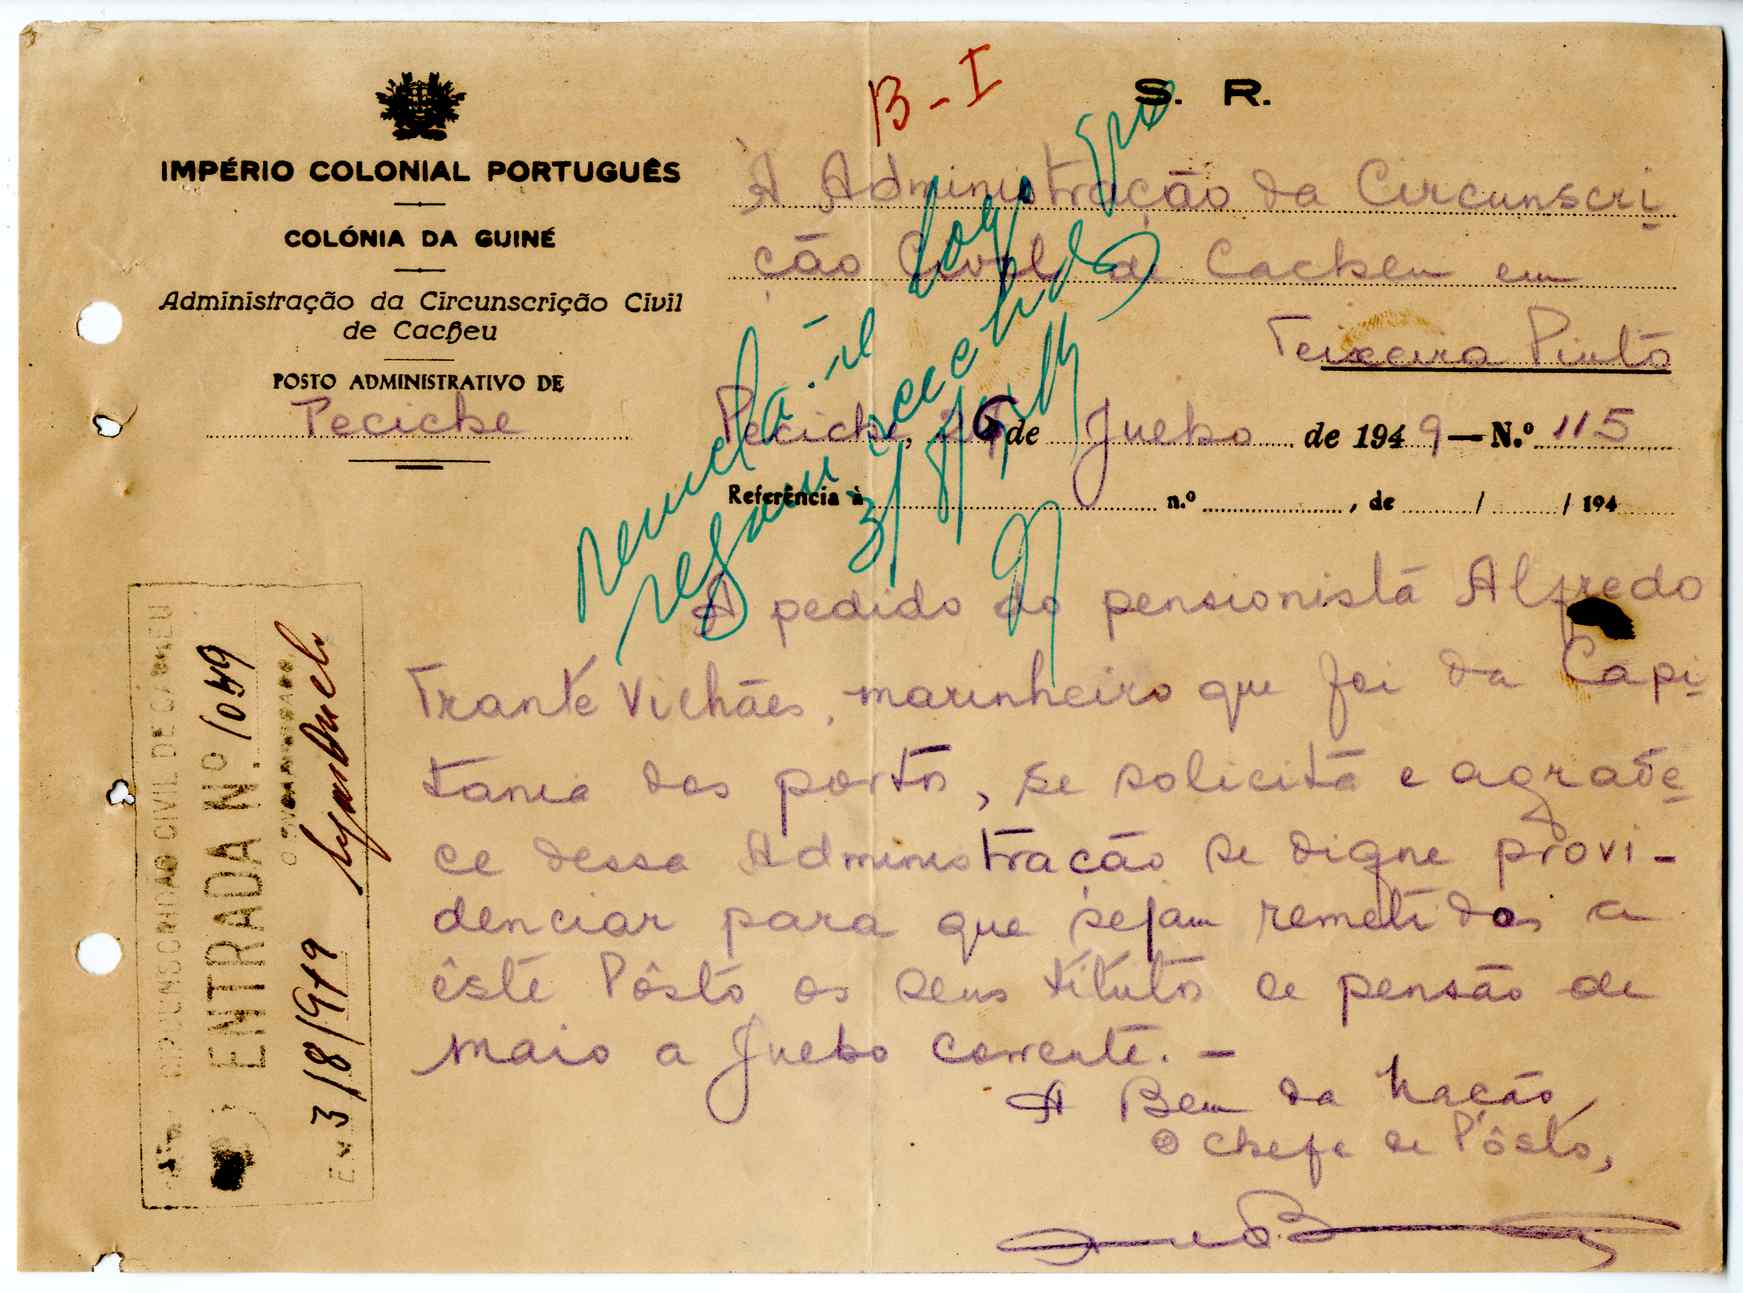 B - I
S. R.
IMPÉRIO COLONIAL PORTUGUÊS
COLÓNIA DA GUINÉ
Administração da Circunscrição Civil
de Cacheu
POSTO ADMINISTRATIVO DE
Pecicke
À Administração da Circunscri-
ção Civil de Cacheu em
Teixeira Pinto
Pecicke, 26 de Julho de 1949 — N.º 115
Referência à n.º , de / / 194
logo que
sejam
3/8/49
A pedido do pensionista Alfredo
Trante Vilhães, marinheiro que foi da Capi-
tania dos portos, se solicita e agrade-
ce dessa Administração se digne provi-
denciar para que sejam remetidos a
êste Pôsto os seus títulos de pensão de
Maio a Julho corrente. —
A Bem da Nação
O Chefe de Pôsto,
CIRCUNSCRIÇÃO CIVIL DE CACHEU
ENTRADA Nº. 1059
EM 3/8/949
O ENCARREGADO